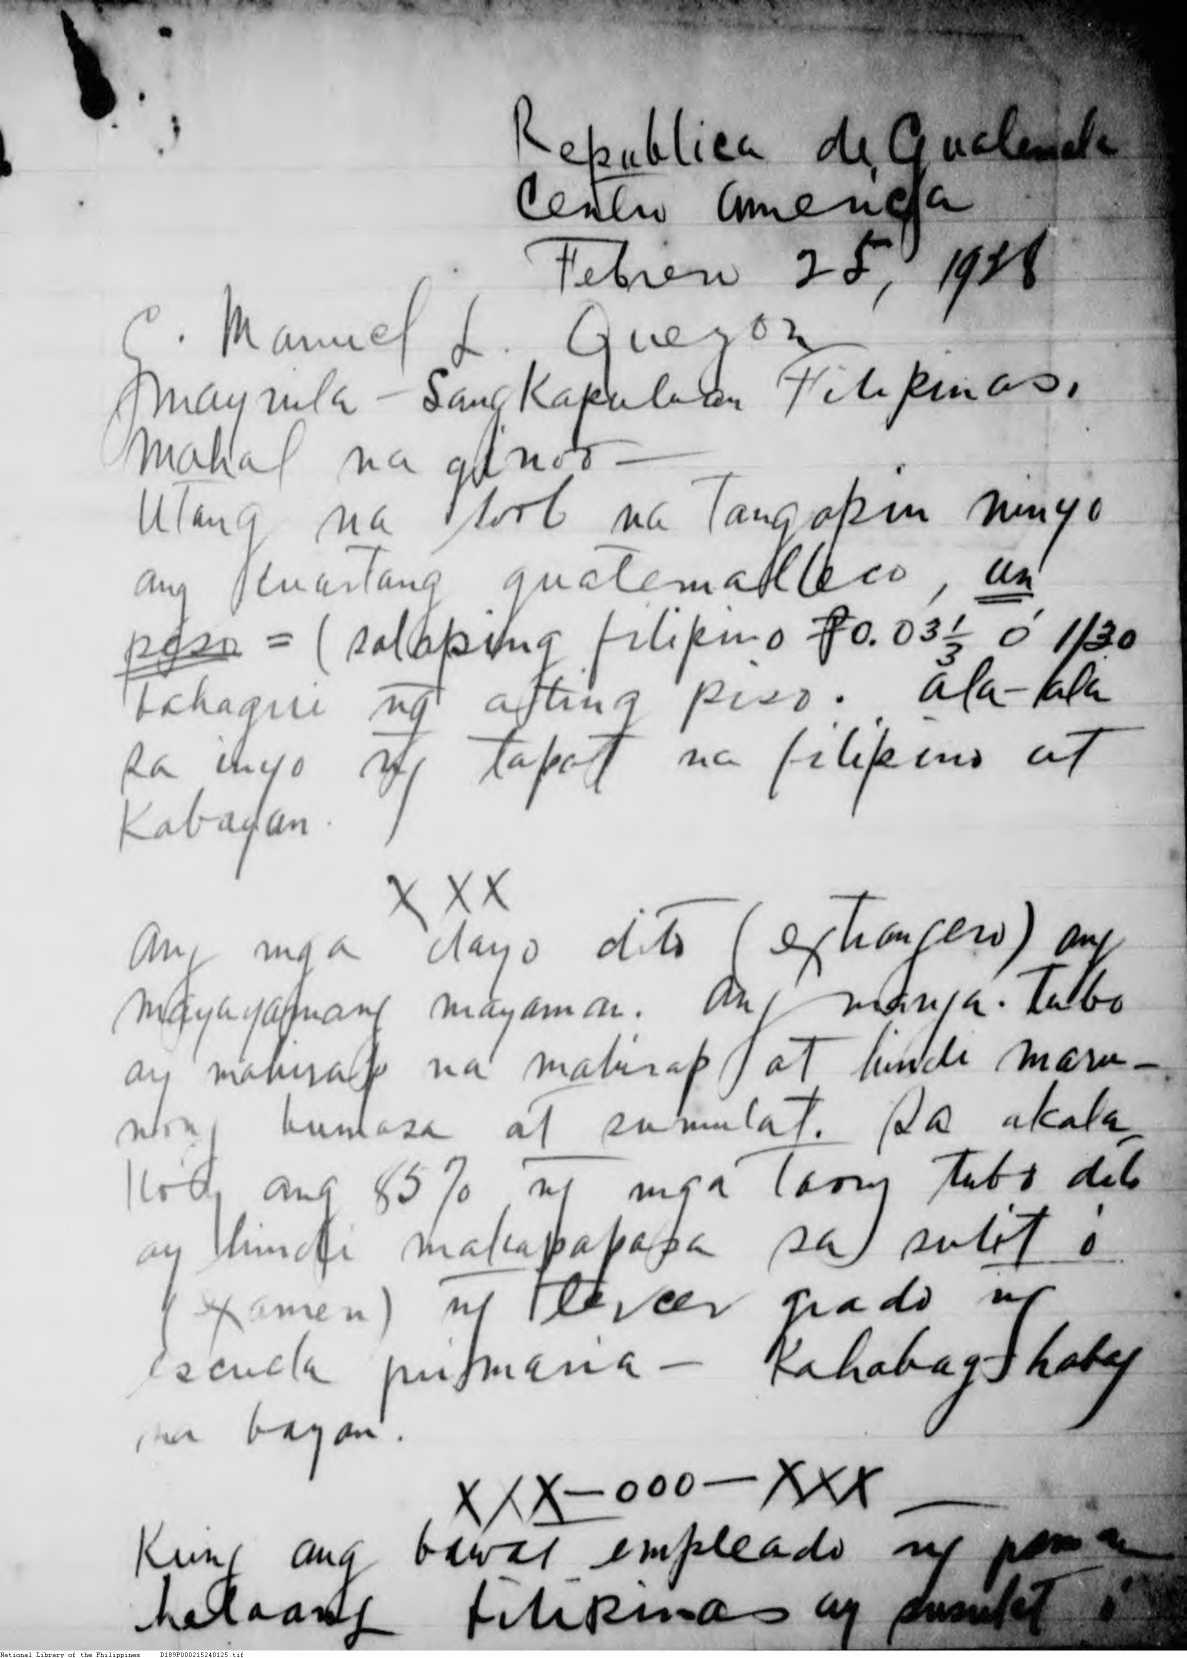 Republica de Guatemala
Centro America
Febrero 25, 1938
E. Manuel L. Quezon
Maynila - Sangkapuluan Filipinas.
Mahal na ginoo —
Utang na loob na tangapin ninyo
ang kuartang guatemalteco, un
peso = (salaping filipino ₱0.03⅓ ó 1/30
bahagui ng ating piso. ala-ala
sa inyo ng tapat na filipino at
Kabayan.
X X X
Ang mga dayo dito (extrangero) ang
mayayamang mayaman. Ang manga tubo
ay mahirap na mahirap at hindi maru-
nong bumasa at sumulat. Sa akala
ko'y ang 85% ng mga taong tubo dito
ay hindi makapapasa sa sulit ó
(examen) ng tercer grado ng
escuela primaria — Kahabag-habag
na bayan.
XXX—000—XXX —
Kung ang bawat empleado ng pama
halaang Filipinas ay susulat ó
National Library of the Philippines D189P000215240125.tif